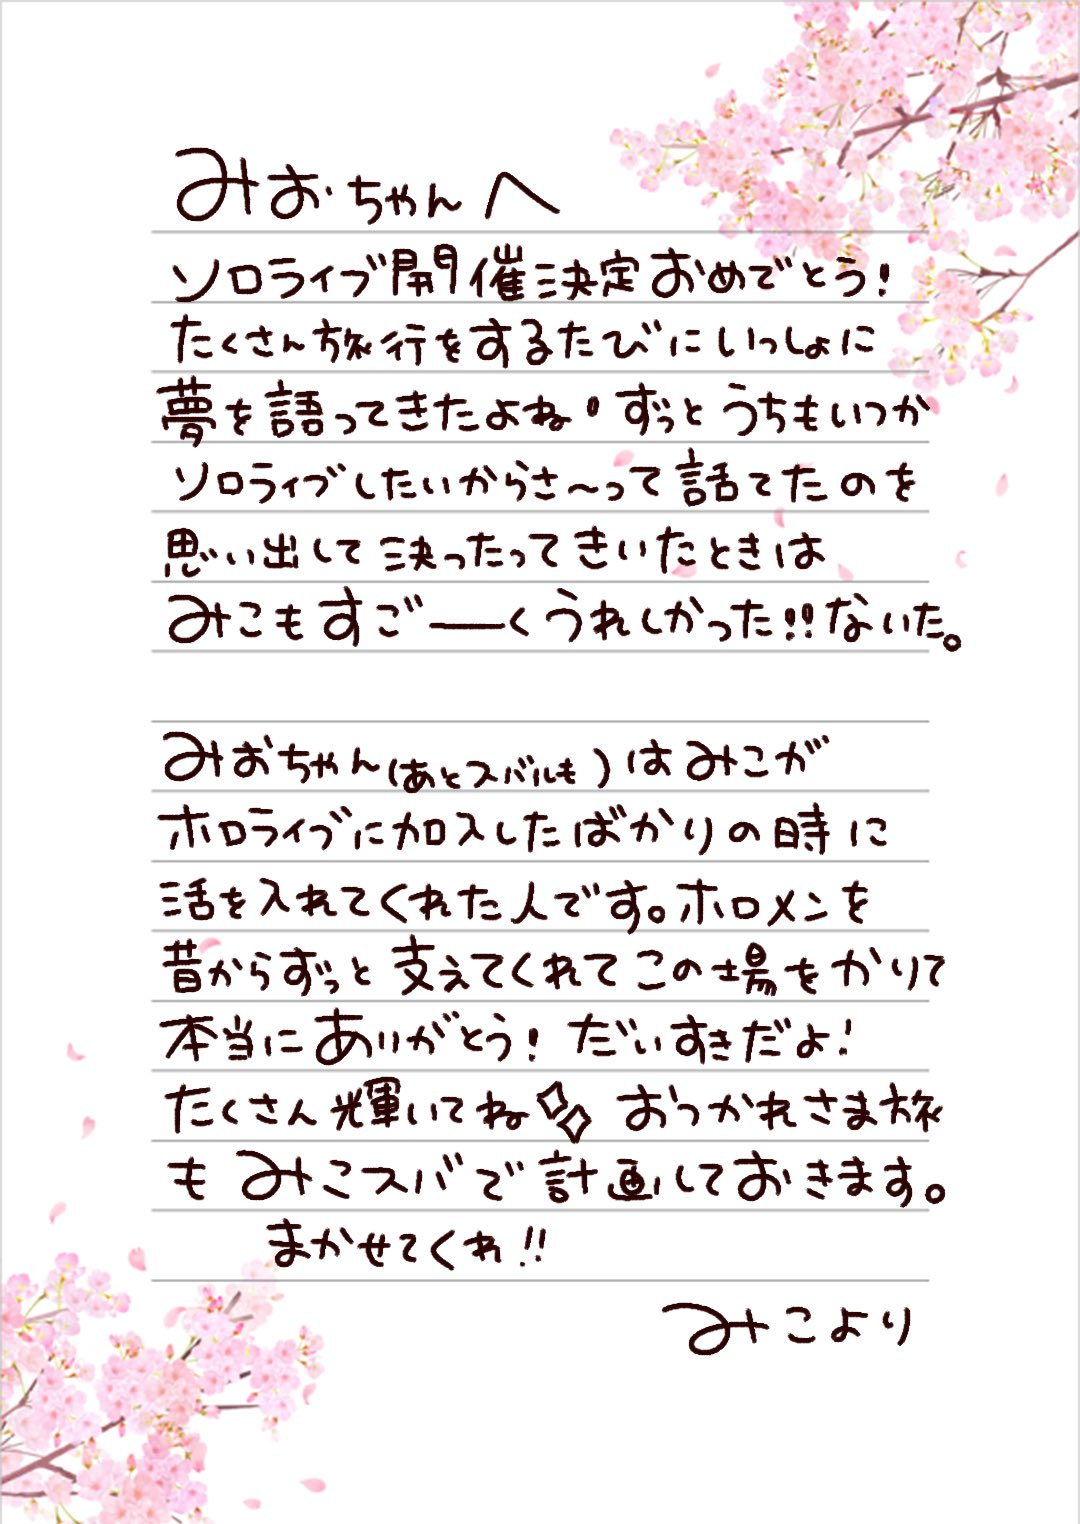 みおちゃんへ
ソロライブ開催決定おめでとう!
たくさん旅行をするたびにいっしょに
夢を語ってきたよね。ずっとうちもいつか
ソロライブしたいからさ〜って話てたのを
思い出して決ったってきいたときは
みこもすご――くうれしかった!!ないた。
みおちゃん(あとスバルも)はみこが
ホロライブに加入したばかりの時に
活を入れてくれた人です。ホロメンを
昔からずっと支えてくれてこの場をかりて
本当にありがとう!だいすきだよ!
たくさん輝いてね✧✧ おつかれさま旅
もみこスバで計画しておきます。
まかせてくれ!!
みこより